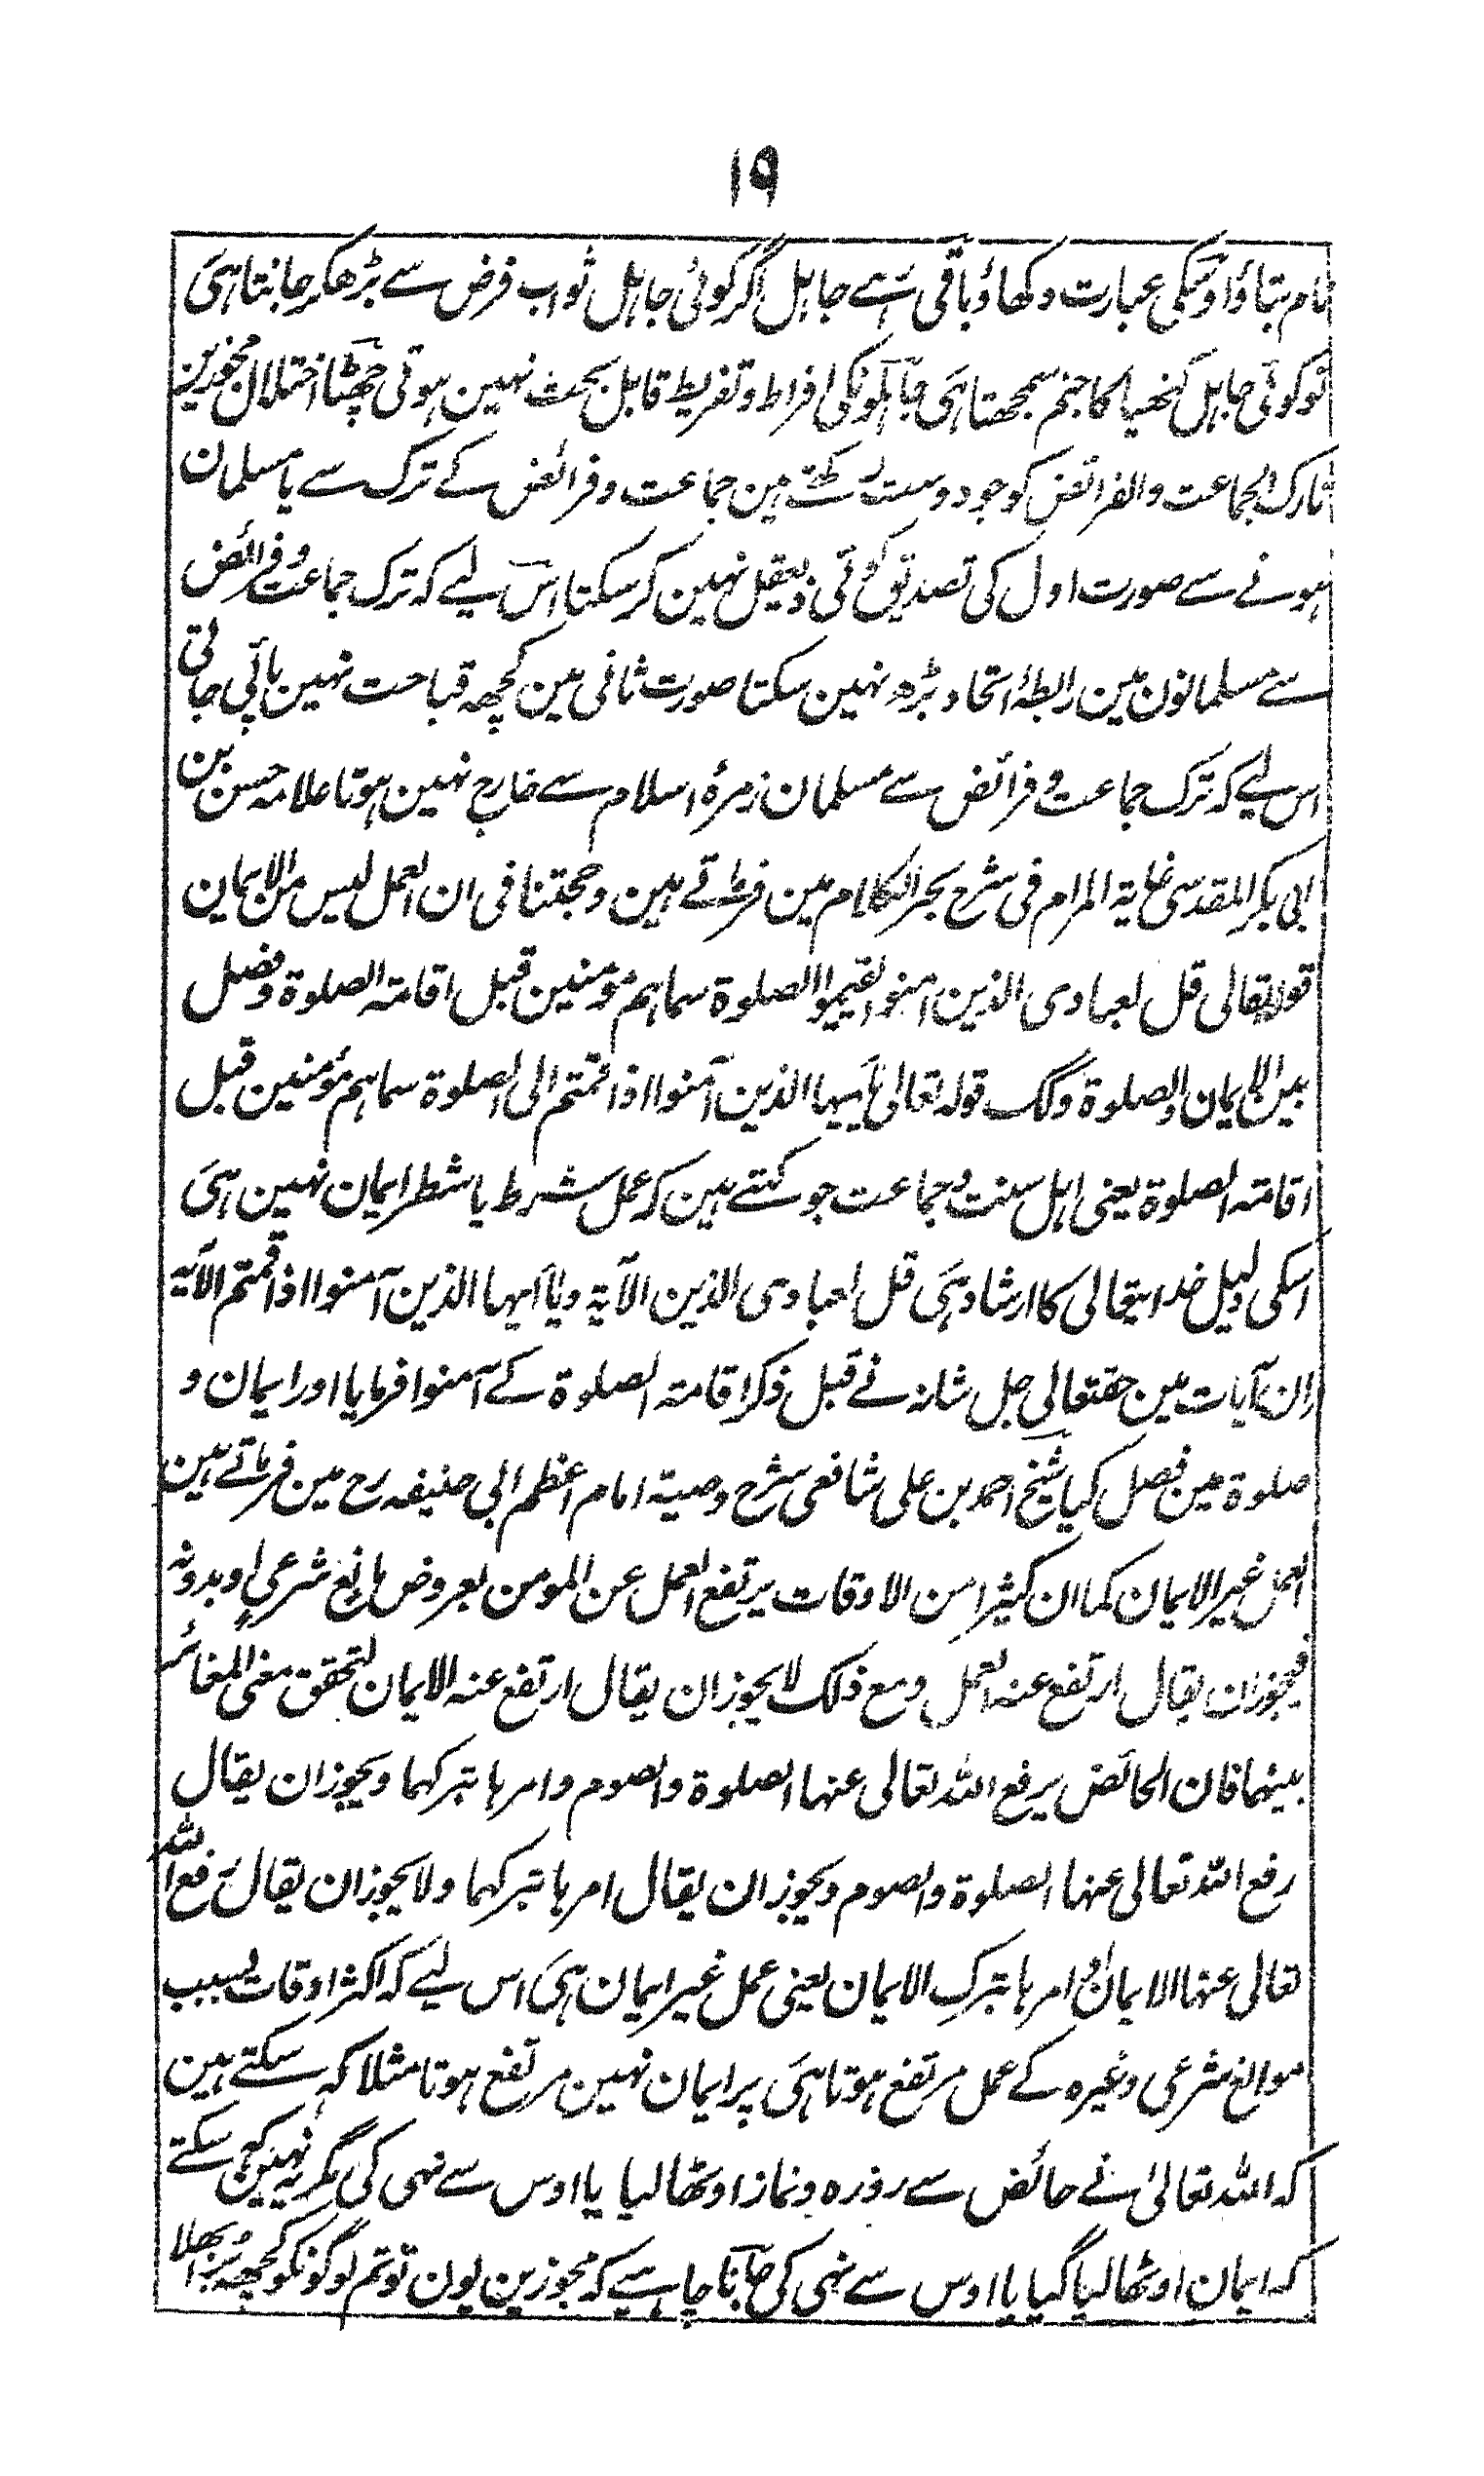 ۱۹
نام بتاؤ اوسکی عبارت دکھاؤ باقی رہے جاہل اگر کوئی جاہل ثواب فرض سے بڑھکر جانتا ہی
تو کوئی جاہل کنھیا کا جنم سمجھتا ہی جاہلونکی افراط و تفریط قابل بحث نہین ہوتی چھٹا اختلال مجوزین
تارک الجماعت والفرائض کو جو دوست رکھتے ہین جماعت و فرائض کے ترک سے یا مسلمان
ہونے سے صورت اول کی تصدیق کوئی ذیعقل نہین کرسکتا اس لیے کہ ترک جماعت و فرائض
سے مسلمانون مین رابطۂ اتحاد بڑھ نہین سکتا صورت ثانی مین کچھہ قباحت نہین پائی جاتی
اس لیے کہ ترک جماعت و فرائض سے مسلمان زمرۂ اسلام سے خارج نہین ہوتا علامہ حسن بن
ابی بکر المقدسی غایۃ المرام فی شرح بحر الکلام مین فرماتے ہین وحجتنا فی ان العمل لیس من الایمان
قولہ تعالی قل لعبادی الذین امنوا یقیموا الصلوۃ سماہم مومنین قبل اقامتہ الصلوۃ وفصل
بین الایمان والصلوۃ وکذلک قولہ تعالیٰ یا ایہا الذین آمنوا اذا قمتم الی الصلوۃ سماہم مؤمنین قبل
اقامتہ الصلوۃ یعنی اہل سنت و جماعت جو کہتے ہین کہ عمل شرط یا شطر ایمان نہین ہی
اسکی دلیل خدا یتعالی کا ارشاد ہی قل لعبادی الذین الآیۃ ویا ایہا الذین آمنوا اذا قمتم الآیۃ
ان آیات مین حقتعالی جل شانہ نے قبل ذکر اقامتہ الصلوۃ کے آمنوا فرمایا اور ایمان و
صلوۃ مین فصل کیا شیخ احمد بن علی شافعی شرح وصیۃ امام اعظم ابی حنیفہ رح مین فرماتے ہین
العمل غیر الایمان کما ان کثیرا من الاوقات یرتفع العمل عن المومن بعروض مانع شرعی او بدونہ
فیجوز ان یقال ارتفع عنہ العمل ومع ذلک لا یجوز ان یقال ارتفع عنہ الایمان لتحقق معنی المغائر
بینہما فان الحائض یرفع اللہ تعالی عنہا الصلوۃ والصوم وامرہا بترکہما ویجوز ان یقال
رفع اللہ تعالی عنہا الصلوۃ والصوم ویجوز ان یقال امرہا بترکہما ولا یجوز ان یقال رفع اللہ
تعالی عنہا الایمان وامرہا بترک الایمان یعنی عمل غیر ایمان ہی اس لیے کہ اکثر اوقات بسبب
موانع شرعی وغیرہ کے عمل مرتفع ہوتا ہی پر ایمان نہین مرتفع ہوتا مثلا کہہ سکتے ہین
کہ اللہ تعالیٰ نے حائض سے روزہ و نماز اوٹھا لیا یا اوس سے نہی کی مگر یہ نہین کہہ سکتے
کہ ایمان اوٹھا لیا گیا یا اوس سے نہی کی جاننا چاہیے کہ مجوزین یون تو تم لوگونکو کچھہ برا بھلا